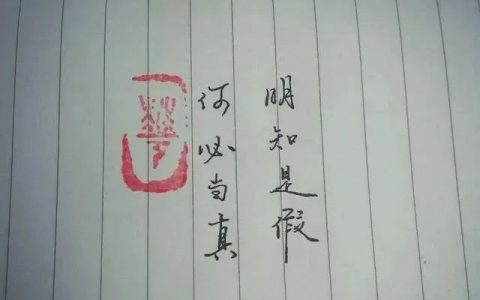 明知是假
何必当真